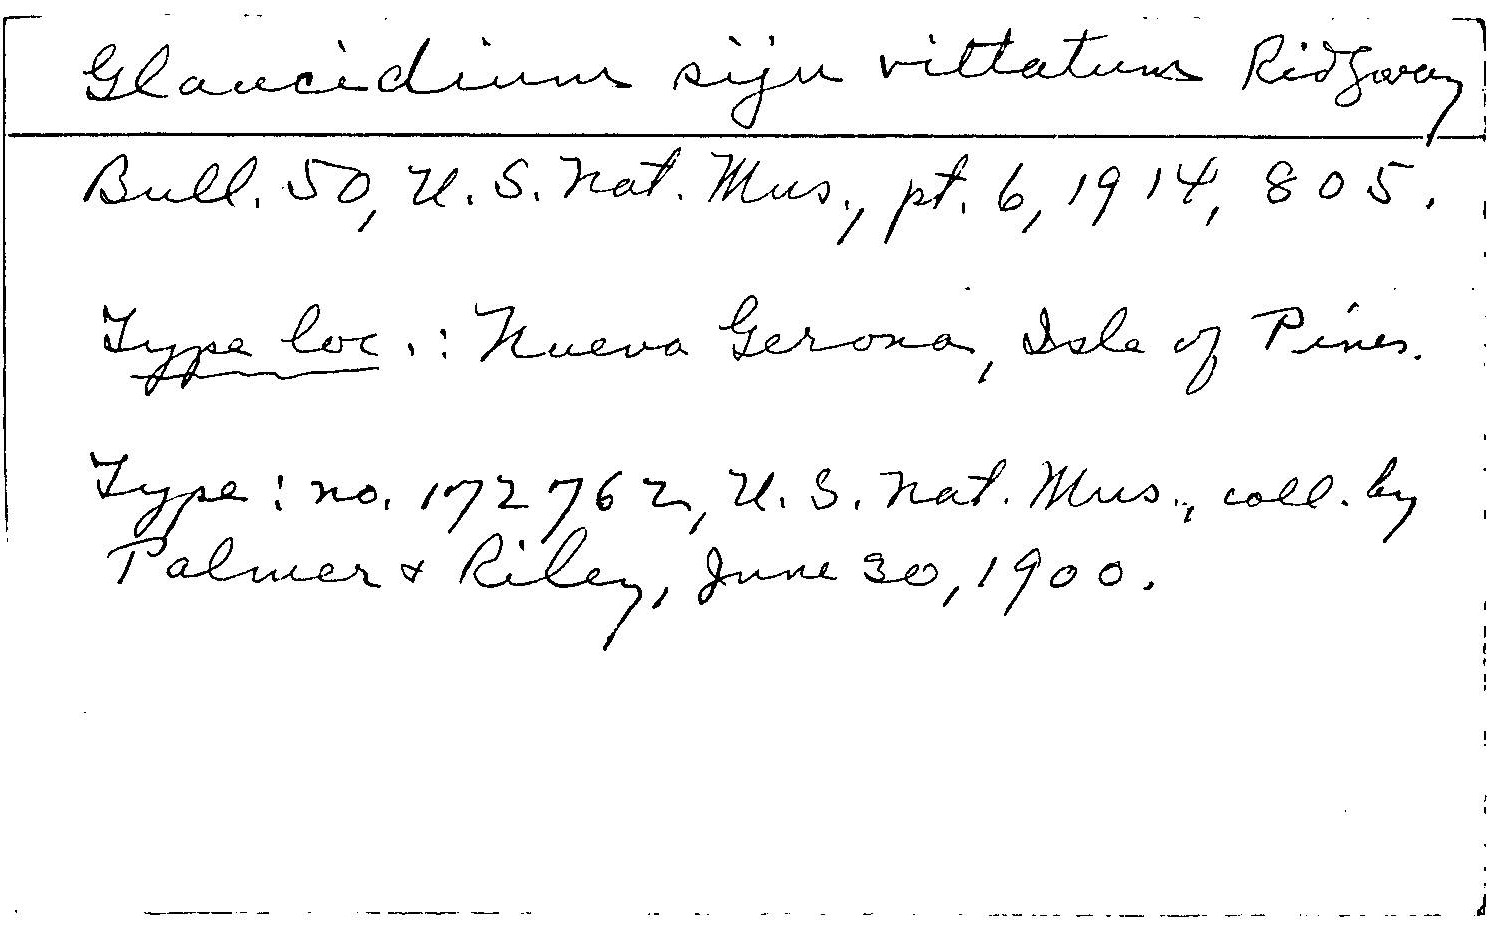 Glaucidium siju vittatum Ridgway
Bull. 50, U. S. Nat. Mus., pt. 6, 1914, 805.
Type loc.: Nueva Gerona, Isle of Pines.
Type: no. 172762, U. S. Nat. Mus., coll. by
Palmer & Riley, June 30, 1900.